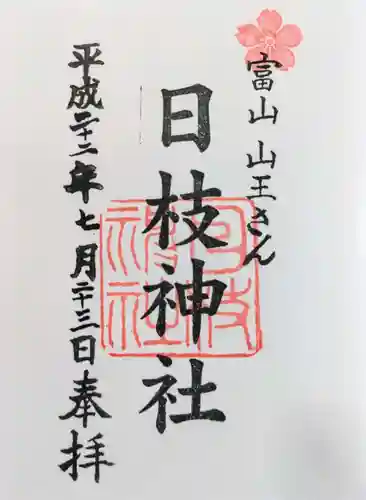 富山山王さん
日枝神社
平成二十二年七月二十三日奉拝
日枝神社